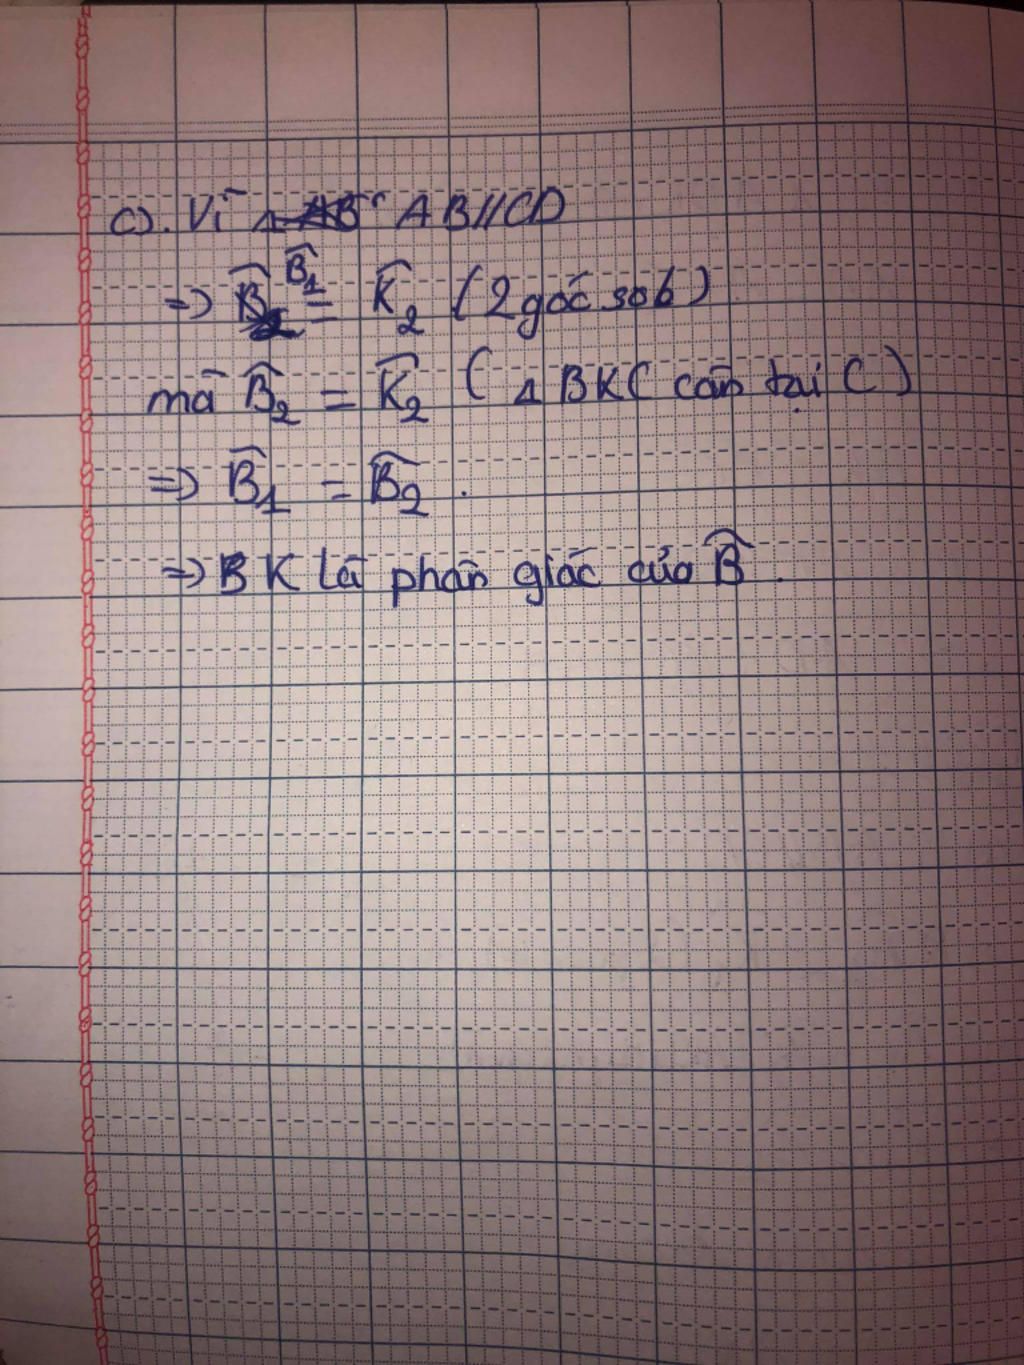 c). Vì AB//CD
=> B̂₁ = K̂₂ (2 góc so le)
mà B̂₂ = K̂₂ (Δ BKC cân tại C)
=> B̂₁ = B̂₂.
=> BK là phân giác của B̂.